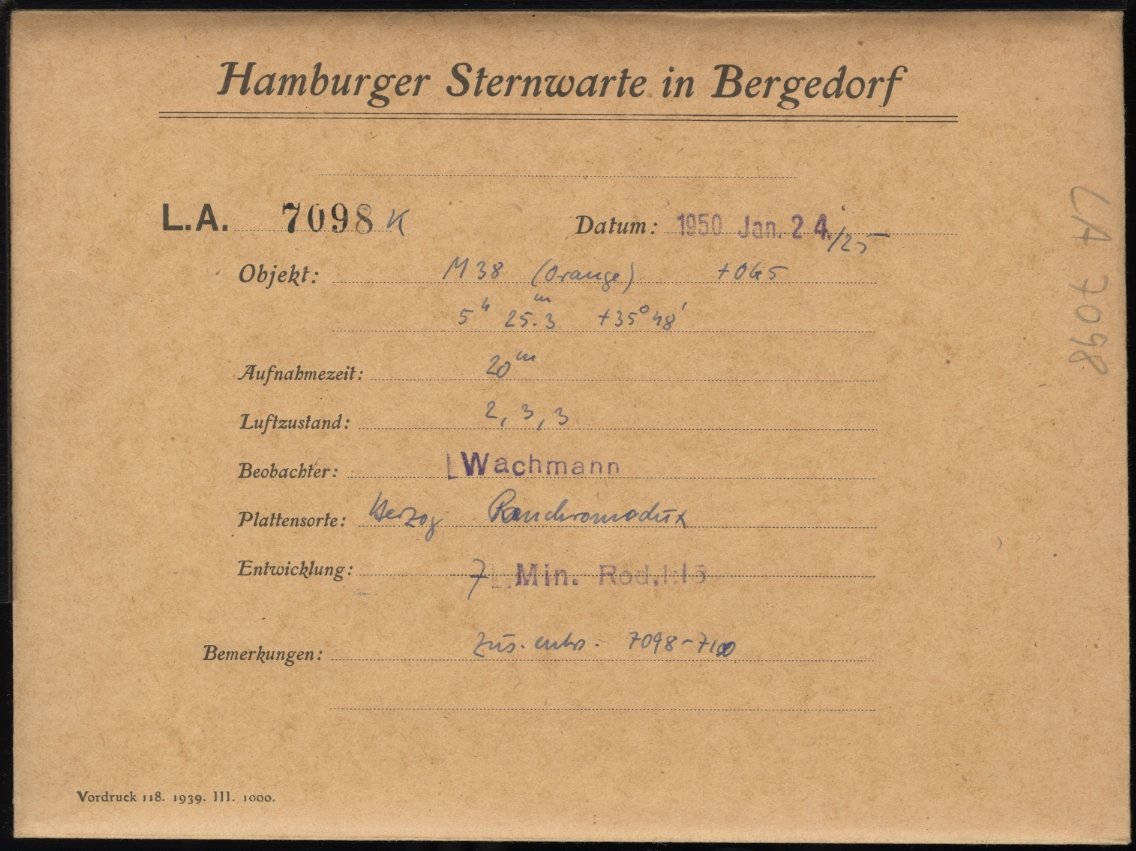 Hamburger Sternwarte in Bergedorf
L.A. 7098 K Datum: 1950 Jan. 24./25
Objekt: M 38 (Orange) +065
5ʰ 25.ᵐ3 +35° 48'
Aufnahmezeit: 20ᵐ
Luftzustand: 2, 3, 3
Beobachter: Wachmann
Plattensorte: Herzog
Entwicklung: 7 Min. Rod. 1:15
Bemerkungen: zus. entw. 7098-7100
Vordruck 118. 1939. III. 1000.
LA 7098